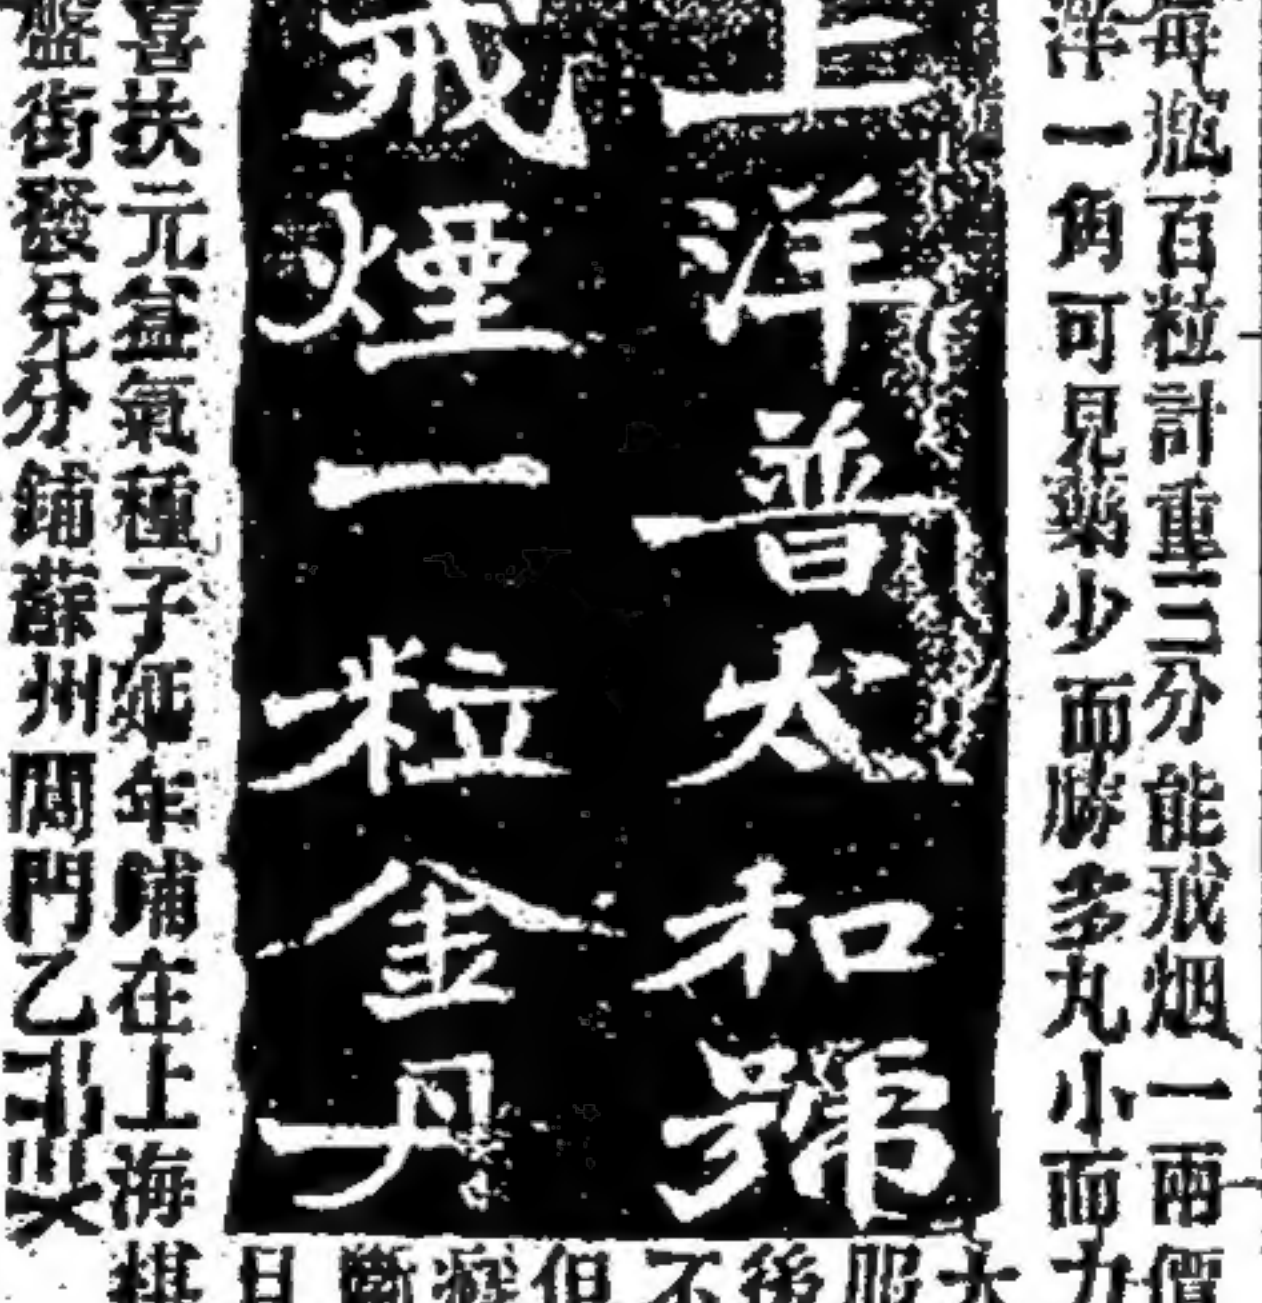 每瓶百粒計重三分能戒烟一兩價
洋一角可見藥少而勝多丸小而力
上洋普太和號
戒煙一粒金丹
大服後不但斷且
喜扶元益氣種子延年鋪在上海棋
盤街發兌分鋪蘇州閶門乙